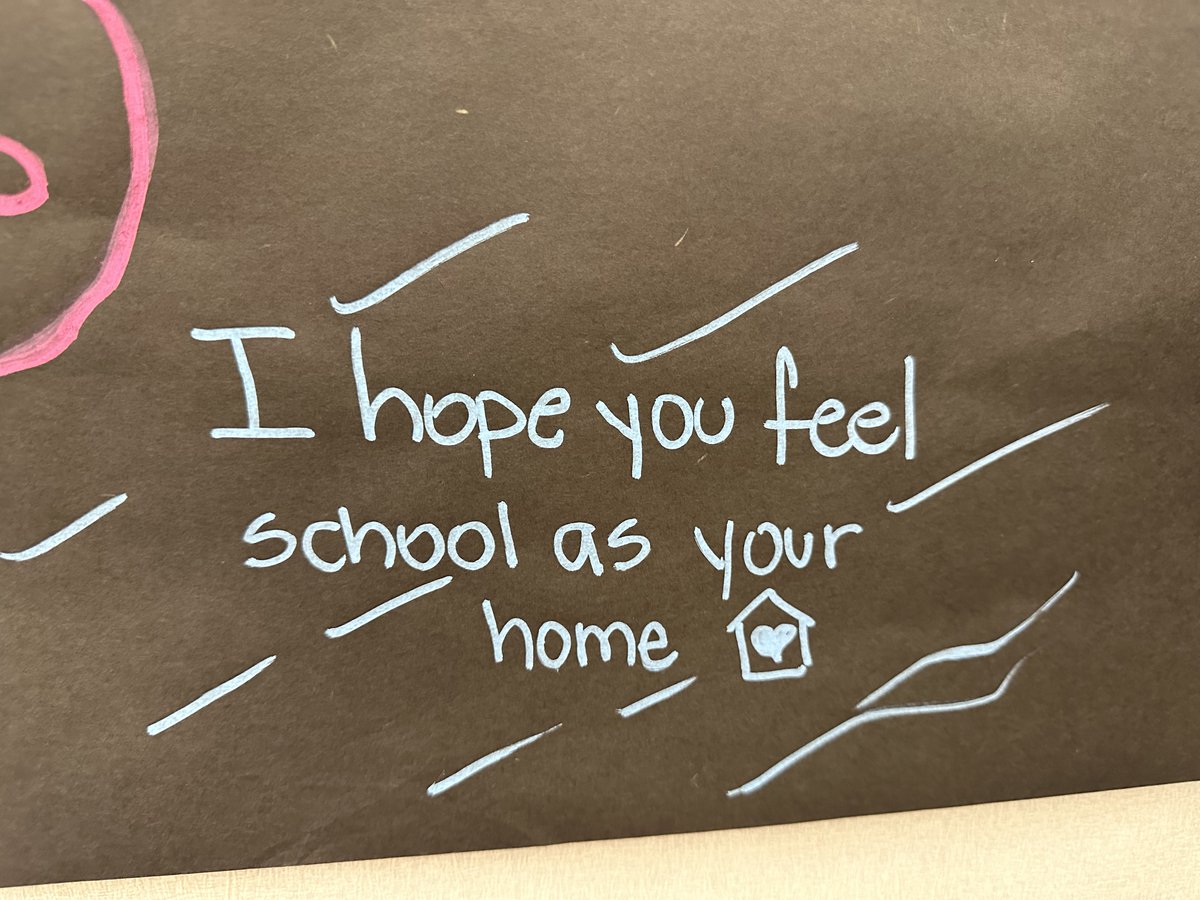 I hope you feel
school as your
home